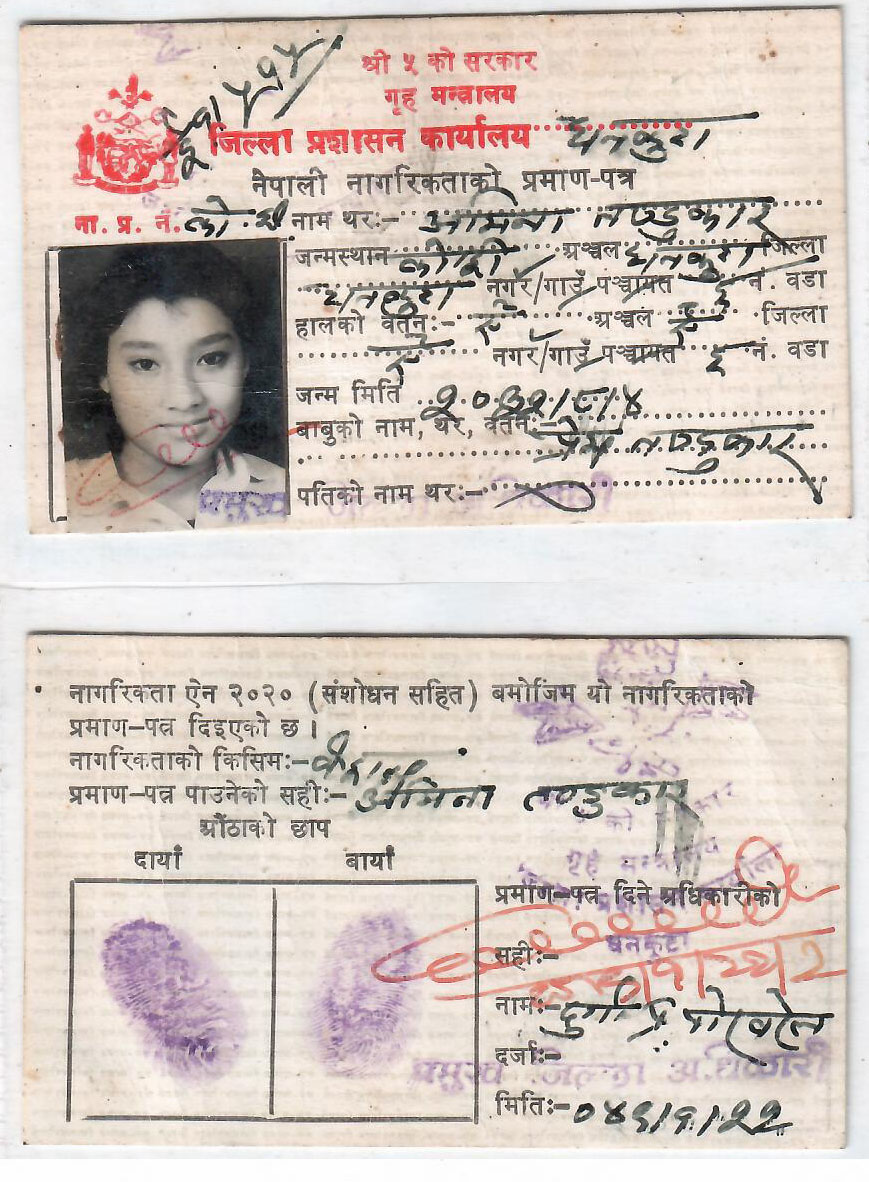 श्री ५ को सरकार
गृह मन्त्रालय
जिल्ला प्रशासन कार्यालय धनकुटा
नेपाली नागरिकताको प्रमाण-पत्र
ना. प्र. नं. नाम थरः- अमिना तण्डुकार
जन्मस्थान कोशी अञ्चल धनकुटा जिल्ला
धनकुटा नगर/गाउँ पञ्चायत ६ नं. वडा
हालको वतनः- ऐ अञ्चल ऐ जिल्ला
ऐ नगर/गाउँ पञ्चायत ६ नं. वडा
जन्म मिति
बाबुको नाम, थर, वतनः- प्रेम तण्डुकार
पतिको नाम थरः-
प्रमुख
नागरिकता ऐन २०२० (संशोधन सहित) बमोजिम यो नागरिकताको
प्रमाण-पत्र दिइएको छ।
नागरिकताको किसिमः- वंशज
प्रमाण-पत्र पाउनेको सहीः- अमिना तण्डुकार
औंठाको छाप
दायाँ बायाँ
प्रमाण-पत्र दिने अधिकारीको
सहीः- धनकुटा
नामः-
दर्जाः-
प्रमुख जिल्ला अधिकारी
मितिः-